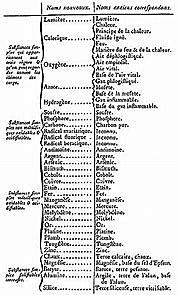 Noms nouveaux.
Noms anciens correspondans.
Lumière
Lumière.
Chaleur.
Principe de la chaleur.
Calorique
Fluide igné.
Feu.
Matière du feu & de la chaleur.
Air déphlogistiqué.
Air empiréal.
Oxygène
Air vital.
Base de l'air vital.
Gaz phlogistiqué.
Azote
Mofete.
Base de la mofete.
Hydrogène
Gaz inflammable.
Base du gaz inflammable.
Soufre
Soufre.
Phosphore
Phosphore.
Carbone
Charbon pur.
Radical muriatique
Inconnu.
Radical fluorique
Inconnu.
Radical boracique
Inconnu.
Antimoine
Antimoine.
Argent
Argent.
Arsenic
Arsenic.
Bismuth
Bismuth.
Cobolt
Cobolt.
Cuivre
Cuivre.
Etain
Etain.
Fer
Fer.
Manganèse
Manganèse.
Mercure
Mercure.
Molybdène
Molybdène.
Nickel
Nickel.
Or
Or.
Platine
Platine.
Plomb
Plomb.
Tungstène
Tungstène.
Zinc
Zinc.
Chaux
Terre calcaire, chaux.
Magnésie
Magnésie, base du sel d'Epsom.
Baryte
Barote, terre pesante.
Alumine
Argile, terre de l'alun, base de l'alun.
Silice
Terre siliceuse, terre vitrifiable.
Substances simples qui appartiennent aux trois règnes & qu'on peut regarder comme les élémens des corps.
Substances simples non métalliques oxidables & acidifiables.
Substances simples métalliques oxidables & acidifiables.
Substances simples salifiables terreuses.